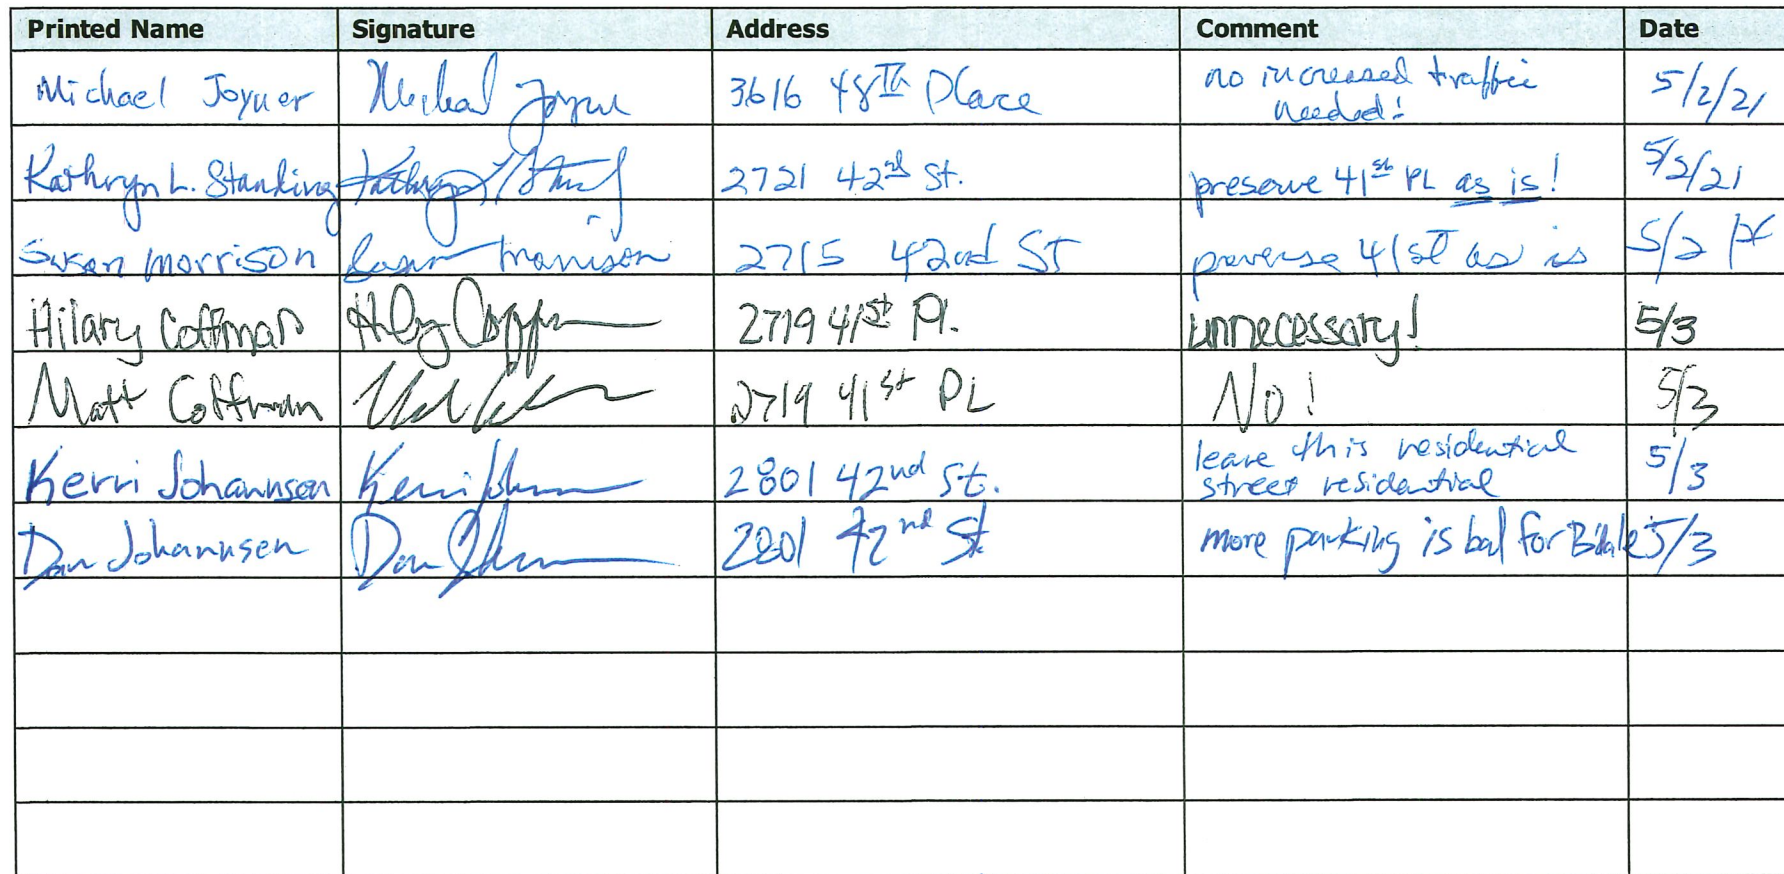 Printed Name Signature Address Comment Date
Michael Joyner Micheal Joyner 3616 48TH Place no increased traffic needed! 5/2/21
Kathryn L. Standing Kathryn L Stand 2721 42nd St. preserve 41st PL as is! 5/2/21
Susan Morrison Susan Morrison 2715 42nd ST preverse 41st as is 5/2
Hilary Coffman 2719 41st Pl. unnecessary! 5/3
Matt Coffman 2719 41st PL No! 5/3
Kerri Johannsen Kerri Joh 2801 42nd St. leave this residential street residential 5/3
Dan Johannsen Dan 2801 42nd St more parking is bad for Bdale 5/3